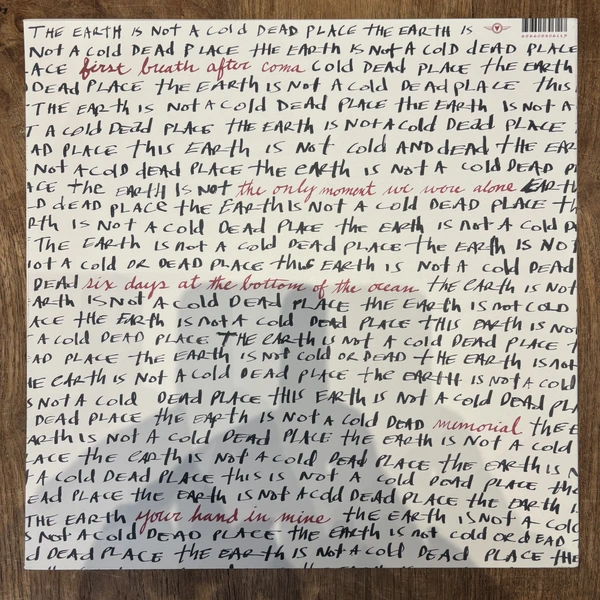 THE EARTH IS NOT A COLD DEAD PLACE THE EARTH IS
NOT A COLD DEAD PLACE THE EARTH IS NOT A COLD DEAD PLACE
ACE first breath after coma COLD DEAD PLACE THE EARTH
DEAD PLACE THE EARTH IS NOT A COLD DEAD PLACE THIS
THE EARTH IS NOT A COLD DEAD PLACE THE EARTH IS NOT A
T A COLD DEAD PLACE THE EARTH IS NOT A COLD DEAD PLACE
AD PLACE THIS EARTH IS NOT COLD AND DEAD THE EAR
NOT A COLD DEAD PLACE THE EARTH IS NOT A COLD DEAD P
ACE THE EARTH IS NOT the only moment we were alone EARTH
D DEAD PLACE THE EARTH IS NOT A COLD DEAD PLACE T
RTH IS NOT A COLD DEAD PLACE THE EARTH IS NOT A COLD D
THE EARTH IS NOT A COLD DEAD PLACE THE EARTH IS NOT
NOT A COLD OR DEAD PLACE THIS EARTH IS NOT A COLD DEAD
DEAD six days at the bottom of the ocean THE EARTH IS NOT
ARTH IS NOT A COLD DEAD PLACE THE EARTH IS NOT COLD
ACE THE EARTH IS NOT A COLD DEAD PLACE THIS EARTH IS NOT
A COLD DEAD PLACE THE EARTH IS NOT A COLD DEAD PLACE
AD PLACE THE EARTH IS NOT COLD OR DEAD THE EARTH IS NOT
HE EARTH IS NOT A COLD DEAD PLACE THE EARTH IS NOT A COLD
S NOT A COLD DEAD PLACE THIS EARTH IS NOT A COLD DEAD PL
DEAD PLACE THE EARTH IS NOT A COLD DEAD memorial THE E
ARTH IS NOT A COLD DEAD PLACE THE EARTH IS NOT A COLD
LACE THE EARTH IS NOT A COLD DEAD PLACE THE EARTH IS N
T A COLD DEAD PLACE THIS IS NOT A COLD DEAD PLACE THE
EAD PLACE THE EARTH IS NOT A COLD DEAD PLACE THE EARTH
THE EARTH your hand in mine THE EARTH IS NOT A COLD
S NOT A COLD DEAD PLACE THE EARTH IS NOT COLD OR DEAD
D DEAD PLACE THE EARTH IS NOT A COLD DEAD PLACE THE